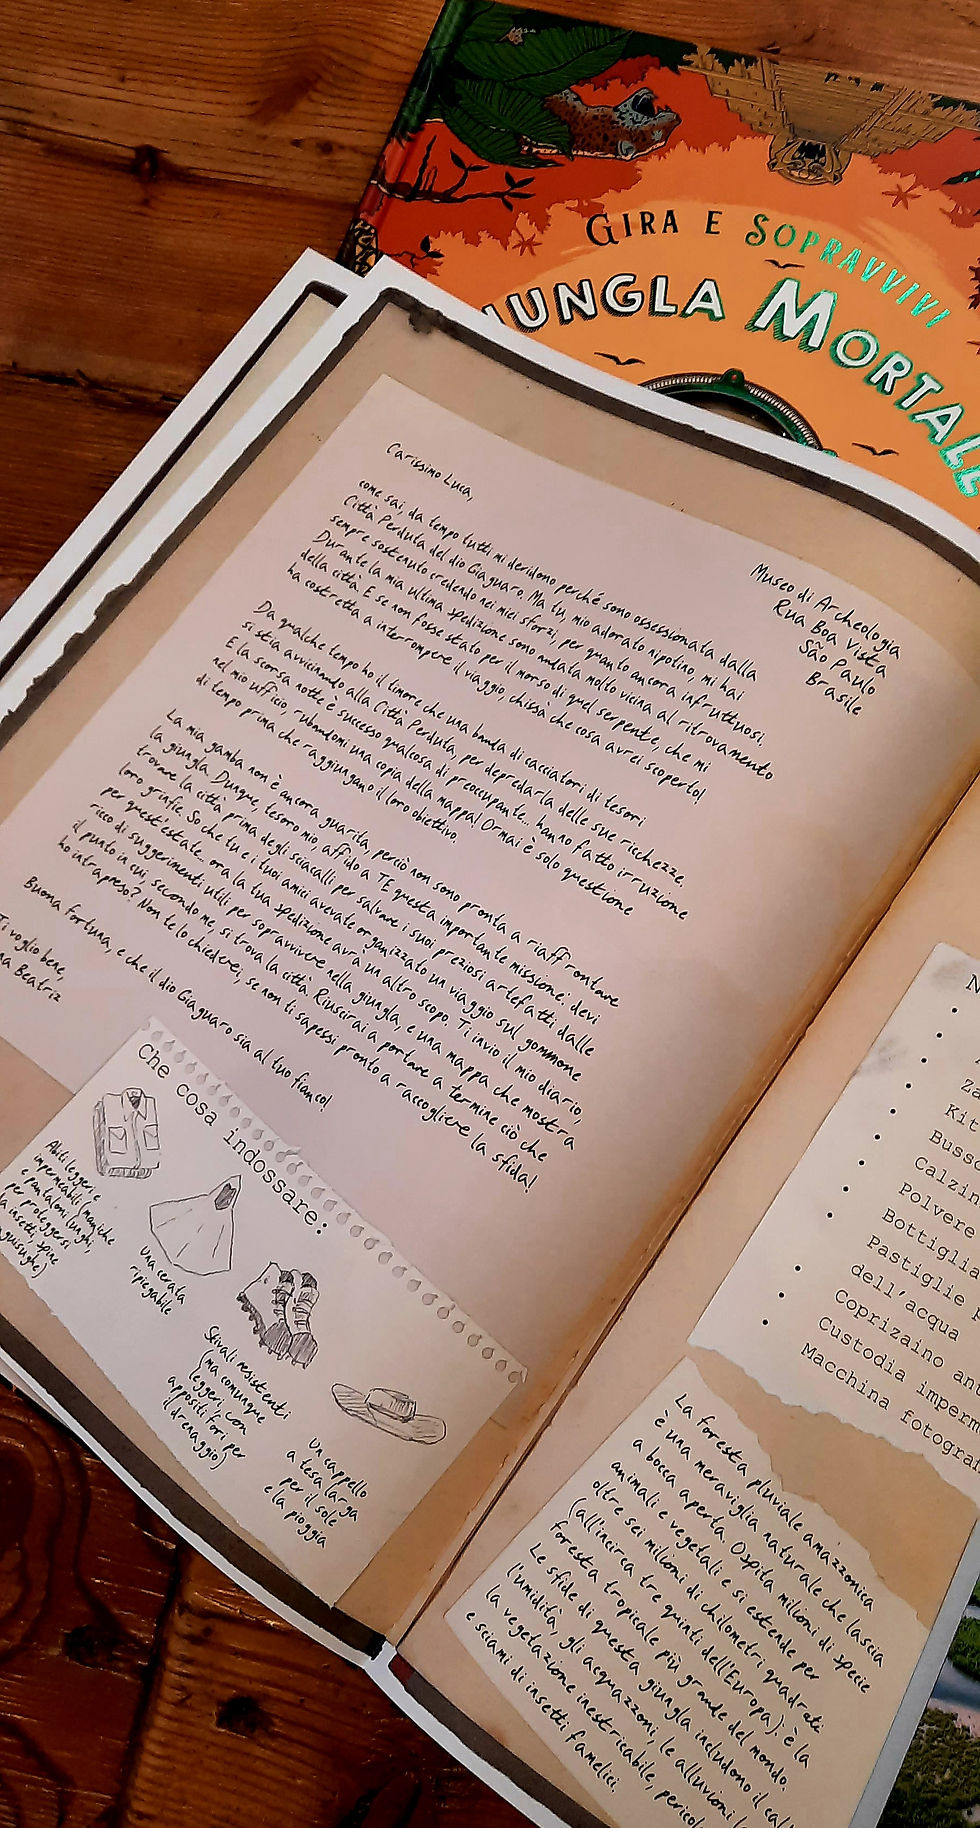 GIRA E SOPRAVVIVI
JUNGLA MORTALE
Museo di Archeologia
Rua Boa Vista
São Paulo
Brasile
Carissimo Luca,
come sai, da tempo tutti mi deridono perché sono ossessionata dalla
Città Perduta del dio Giaguaro. Ma tu, mio adorato nipotino, mi hai
sempre sostenuto credendo nei miei sforzi, per quanto ancora infruttuosi.
Durante la mia ultima spedizione sono andata molto vicina al ritrovamento
della città. E se non fosse stato per il morso di quel serpente, che mi
ha costretta a interrompere il viaggio, chissà che cosa avrei scoperto!
Da qualche tempo ho il timore che una banda di cacciatori di tesori
si stia avvicinando alla Città Perduta, per depredarla delle sue ricchezze.
E la scorsa notte è successo qualcosa di preoccupante... hanno fatto irruzione
nel mio ufficio, rubandomi una copia della mappa! Ormai è solo questione
di tempo prima che raggiungano il loro obiettivo.
La mia gamba non è ancora guarita, perciò non sono pronta a riaffrontare
la giungla. Dunque, tesoro mio, affido a TE questa importante missione: devi
trovare la città prima degli sciacalli per salvare i suoi preziosi artefatti dalle
loro grinfie. So che tu e i tuoi amici avevate organizzato un viaggio sul gommone
per quest'estate... ora la tua spedizione avrà un altro scopo. Ti invio il mio diario,
ricco di suggerimenti utili per sopravvivere nella giungla, e una mappa che mostra
il punto in cui, secondo me, si trova la città. Riuscirai a portare a termine ciò che
ho intrapreso? Non te lo chiederei, se non ti sapessi pronto a raccogliere la sfida!
Buona fortuna, e che il dio Giaguaro sia al tuo fianco!
Ti voglio bene,
Beatriz
Che cosa indossare:
Abiti leggeri e
impermeabili (maniche
e pantaloni lunghi,
per proteggersi
da insetti, spine
una cerata
ripiegabile
Stivali resistenti
(ma comunque
leggeri, con
appositi fori per
il drenaggio)
un cappello
a tesa larga
per il sole
e la pioggia
Kit
Polvere
Bottiglia
Pastiglie
dell'acqua
Coprizaino
Custodia
Macchina
La foresta pluviale amazzonica
è una meraviglia naturale che lascia
a bocca aperta. Ospita milioni di specie
animali e vegetali e si estende per
oltre sei milioni di chilometri quadrati
(all'incirca tre quinti dell'Europa): è la
foresta tropicale più grande del mondo.
Le sfide di questa giungla includono il
l'umidità, gli acquazzoni, le alluvioni
la vegetazione inestricabile,
e sciami di insetti famelici.